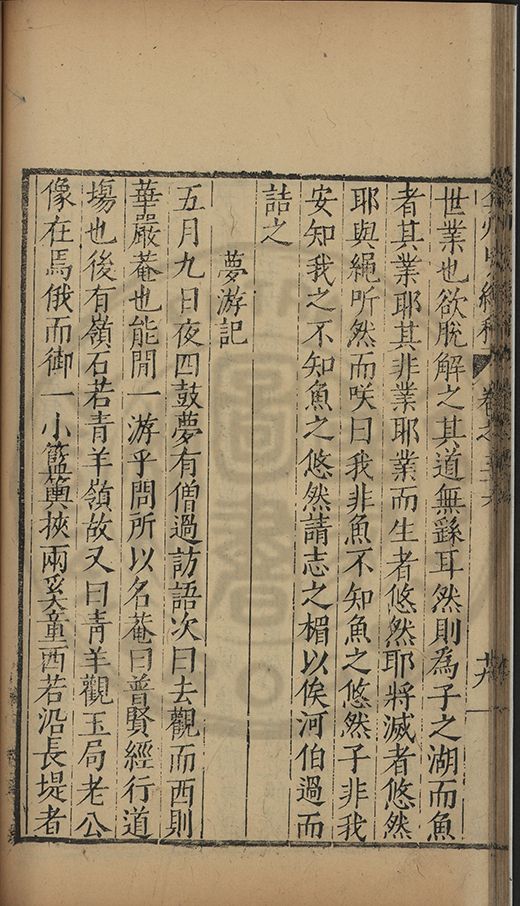 世業也欲脫解之其道無繇耳然則為子之湖而魚
者其業耶其非業耶業而生者悠然耶將滅者悠然
耶與繩听然而咲曰我非魚不知魚之悠然子非我
安知我之不知魚之悠然請志之楣以俟河伯過而
詰之
夢游記
五月九日夜四鼓夢有僧過訪語次曰去觀而西則
華嚴菴也能閒一游乎問所以名菴曰普賢經行道
塲也後有嶺石若青羊嶺故又曰青羊觀玉局老公
像在焉俄而御一小籃輿挾兩奚童西若沿長堤者